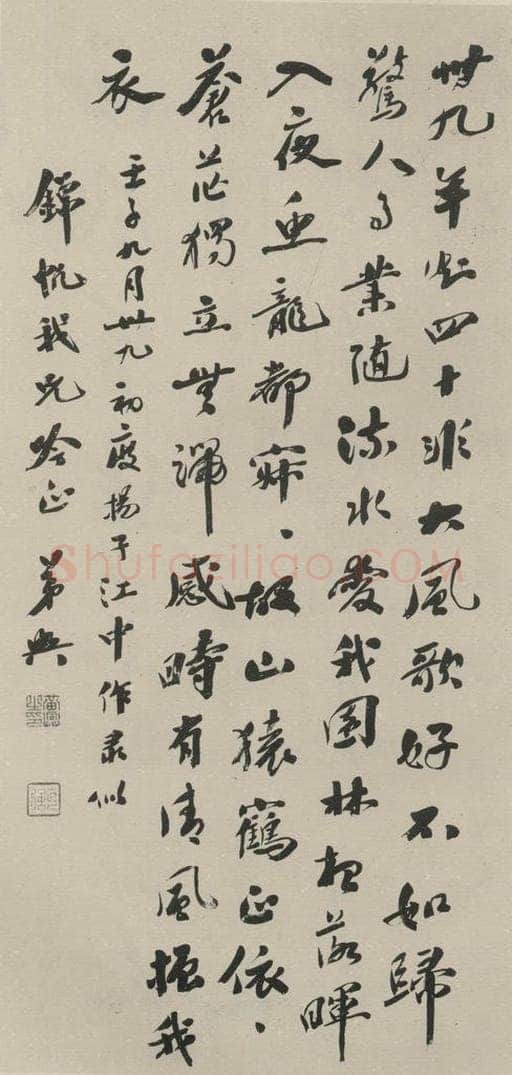 卅九年知四十非大風歌好不如歸
驚人事業隨流水愛我園林想落暉
入夜魚龍都寂、故山猿鶴正依、
蒼茫獨立無端感時有清風振我
衣
壬子九月卅九初度揚子江中作录似
錦帆我兄吟正 弟興
Shufaziliao.COM